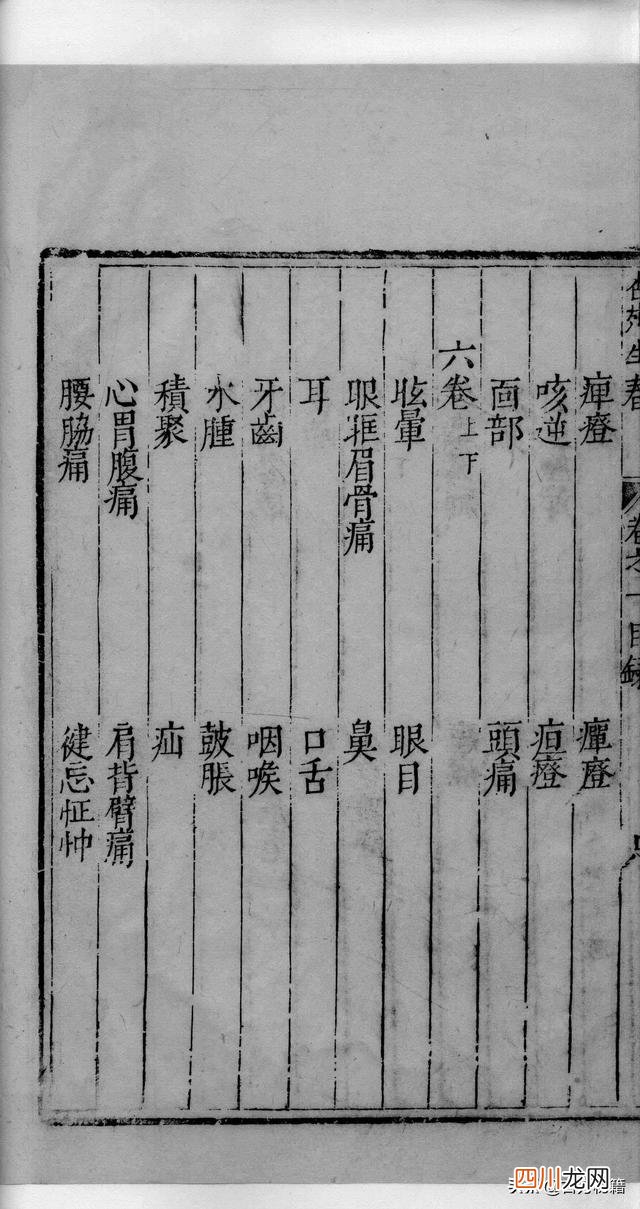 卷之一目錄
痺
癉
咳逆
疸
面部
頭痛
六卷上下
眩暈
眼目
眼眶眉骨痛
鼻
耳
口舌
牙齒
咽喉
水腫
皷脹
積聚
疝
心胃腹痛
肩背臂痛
腰脇痛
徤忘怔忡
四川龙网